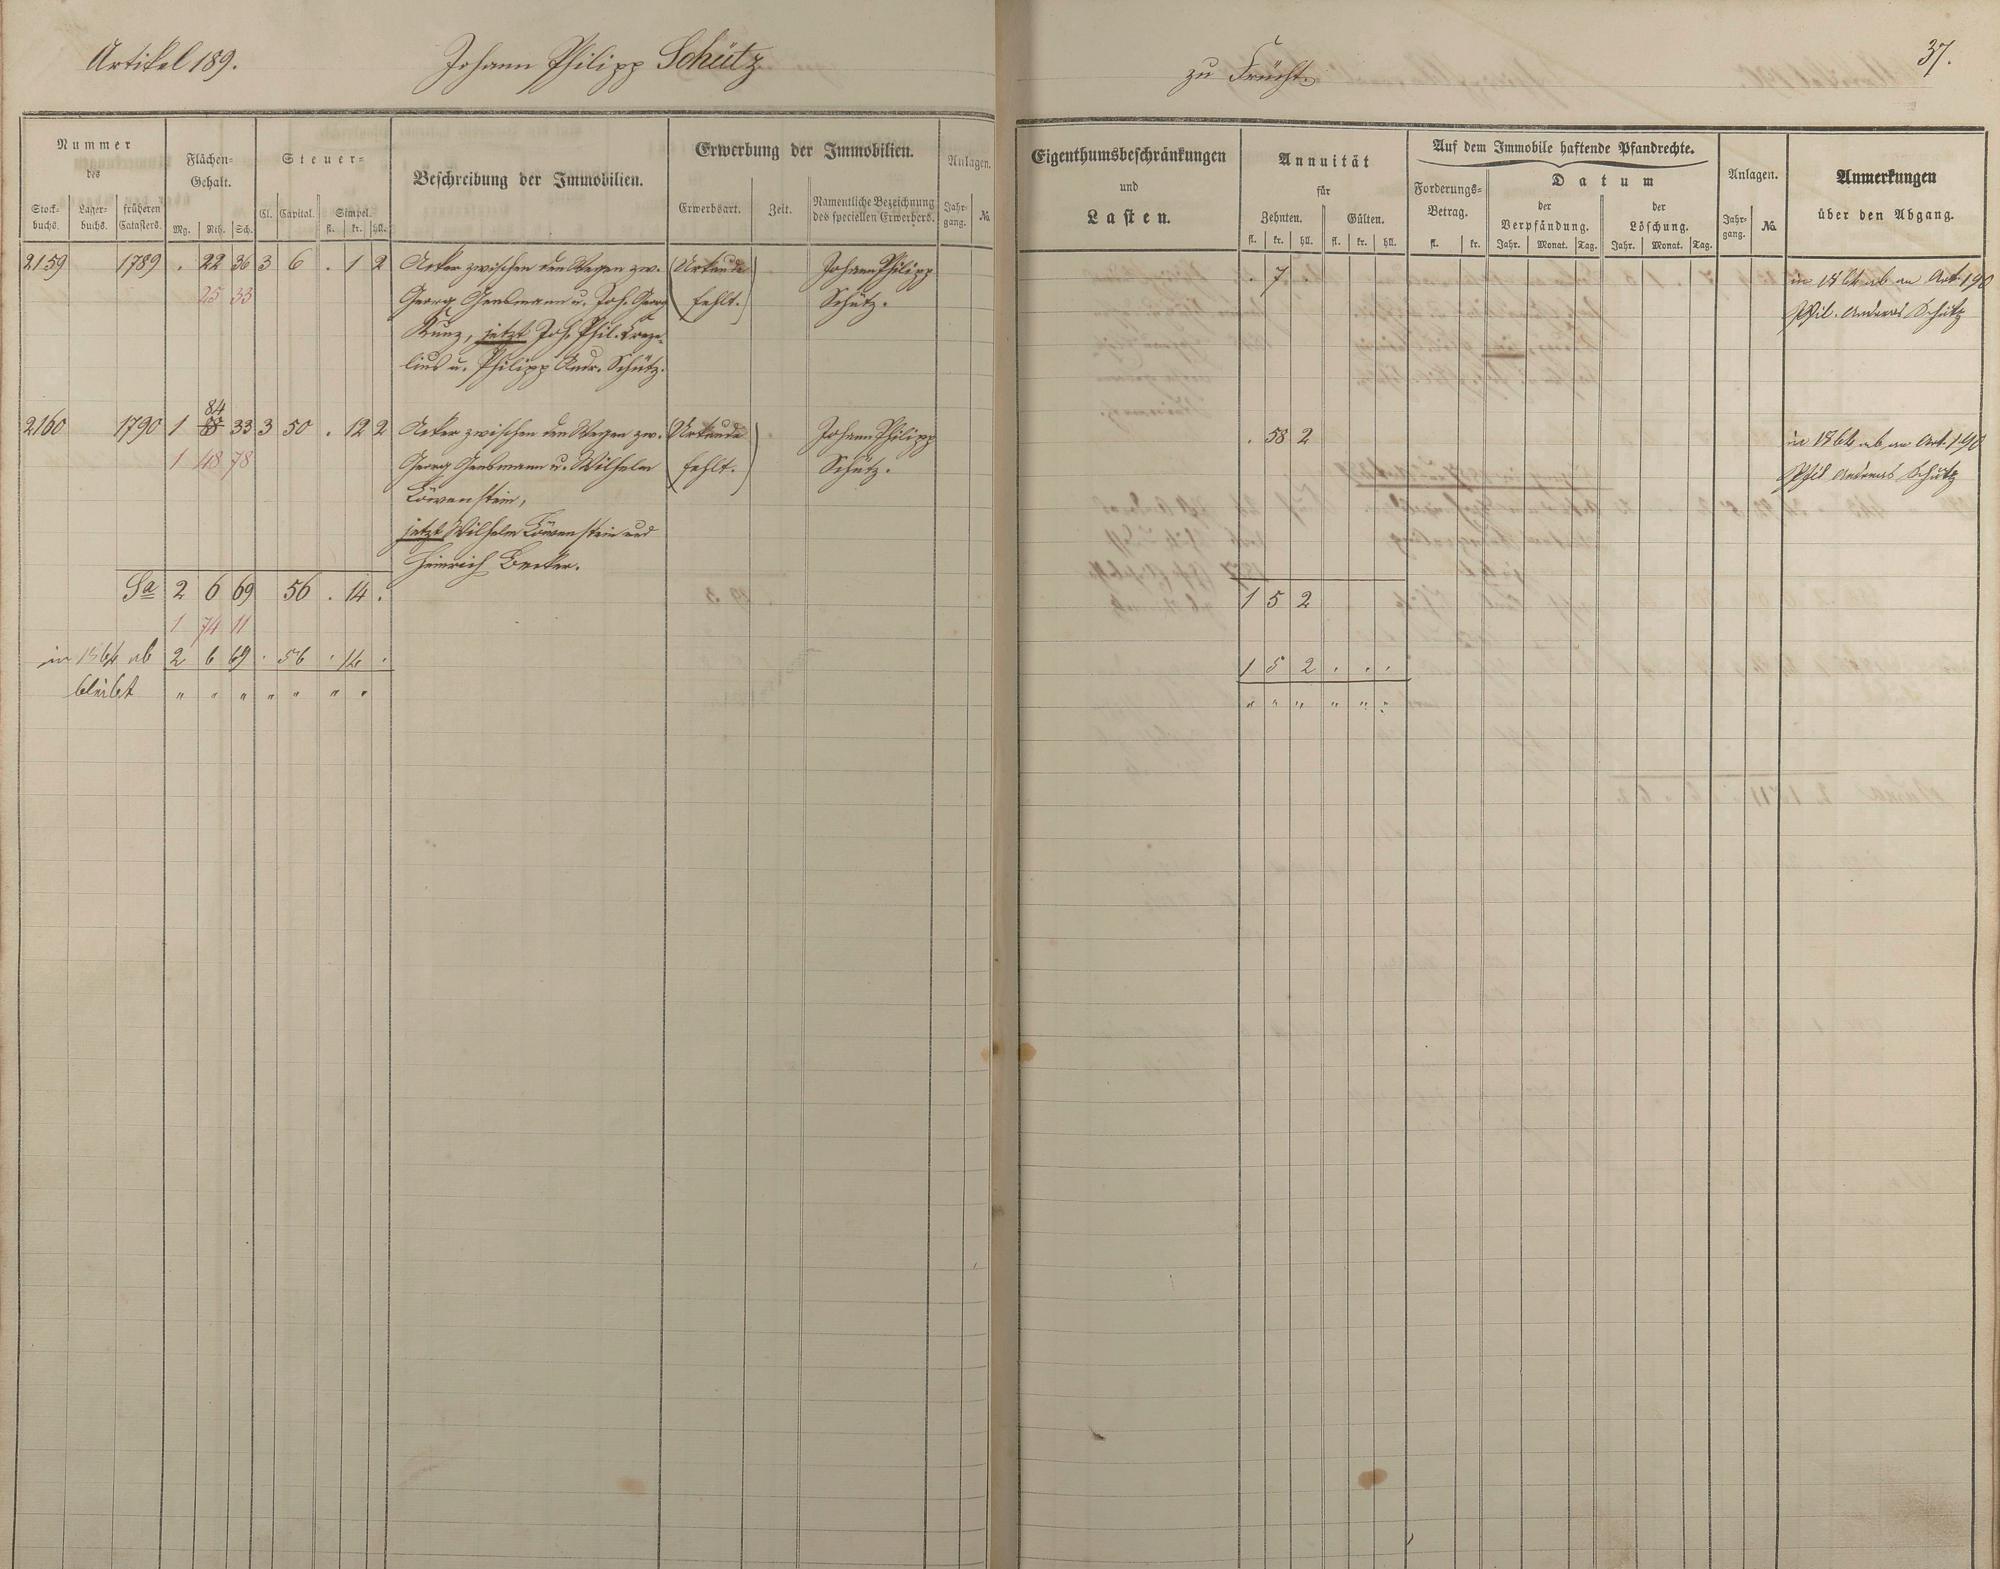 Artikel 189.
Johann Philipp Schütz
zu Frücht.
37.
Nummer
des
Stock-
buchs.
Lager-
buchs.
früheren
Catasters.
Flächen-
Gehalt.
Mg. Rth. Sch.
Steuer-
Cl. Capital. Simpel.
fl. kr. hll.
Beschreibung der Immobilien.
Erwerbung der Immobilien.
Erwerbsart. Zeit. Namentliche Bezeichnung
des speciellen Erwerbers.
Anlagen.
Jahr-
gang.
No.
Eigenthumsbeschränkungen
und
Lasten.
Annuität
für
Zehnten. Gülten.
fl. kr. hll. fl. kr. hll.
Auf dem Immobile haftende Pfandrechte.
Forderungs-
Betrag.
fl. kr.
Datum
der
Verpfändung.
Jahr. Monat. Tag.
der
Löschung.
Jahr. Monat. Tag.
Anlagen.
Jahr-
gang.
No.
Anmerkungen
über den Abgang.
2159 1789 . 22 36 3 6 . 1 2 Acker zwischen den Wegen zw. (Urkunde) Johann Philipp . 7 . in 1864 ab an Art. 190
25 33 Georg Gensmann u. Joh. Georg (fehlt.) Schütz. Phil. Andreas Schütz
Kunz, jetzt Joh. Phil.
lius u. Philipp Andr. Schütz.
84
2160 1790 1 33 3 50 . 12 2 Acker zwischen den Wegen zw. (Urkunde) Johann Philipp . 58 2 in 1864 ab an Art. 190
1 48 78 Georg Gensmann u. Wilhelm (fehlt.) Schütz. Phil Andreas Schütz
Löwenstein,
jetzt Wilhelm Löwenstein und
Heinrich Becker.
Sa 2 6 69 56 . 14 . 1 5 2
1 74 11
in 1864 ab 2 6 69 . 56 . 14 . 1 5 2 . . .
bleibt " " " " " " " " " " " " "